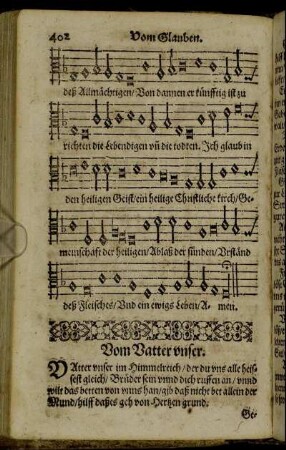 402 Vom Glauben.
deß Allmächtigen/ Von dannen er künfftig ist zu
richten die Lebendigen vñ die todten. Ich glaub in
den heiligen Geist/ ein heilige Christliche kirch/ Ge-
meinschaft der heiligen/ Ablaß der sünden/ Vrständ
deß Fleisches/ Vnd ein ewigs Leben/ A- men.
Vom Vatter vnser.
VAtter vnser im Himmelreich/ der du vns alle heis-
sest gleich/ Brüder sein vnnd dich ruffen an/ vnnd
wilt das betten von vnns han/ gib daß nicht bet allein der
Mund/ hilff daß es geh von Hertzen grund.
Ge-